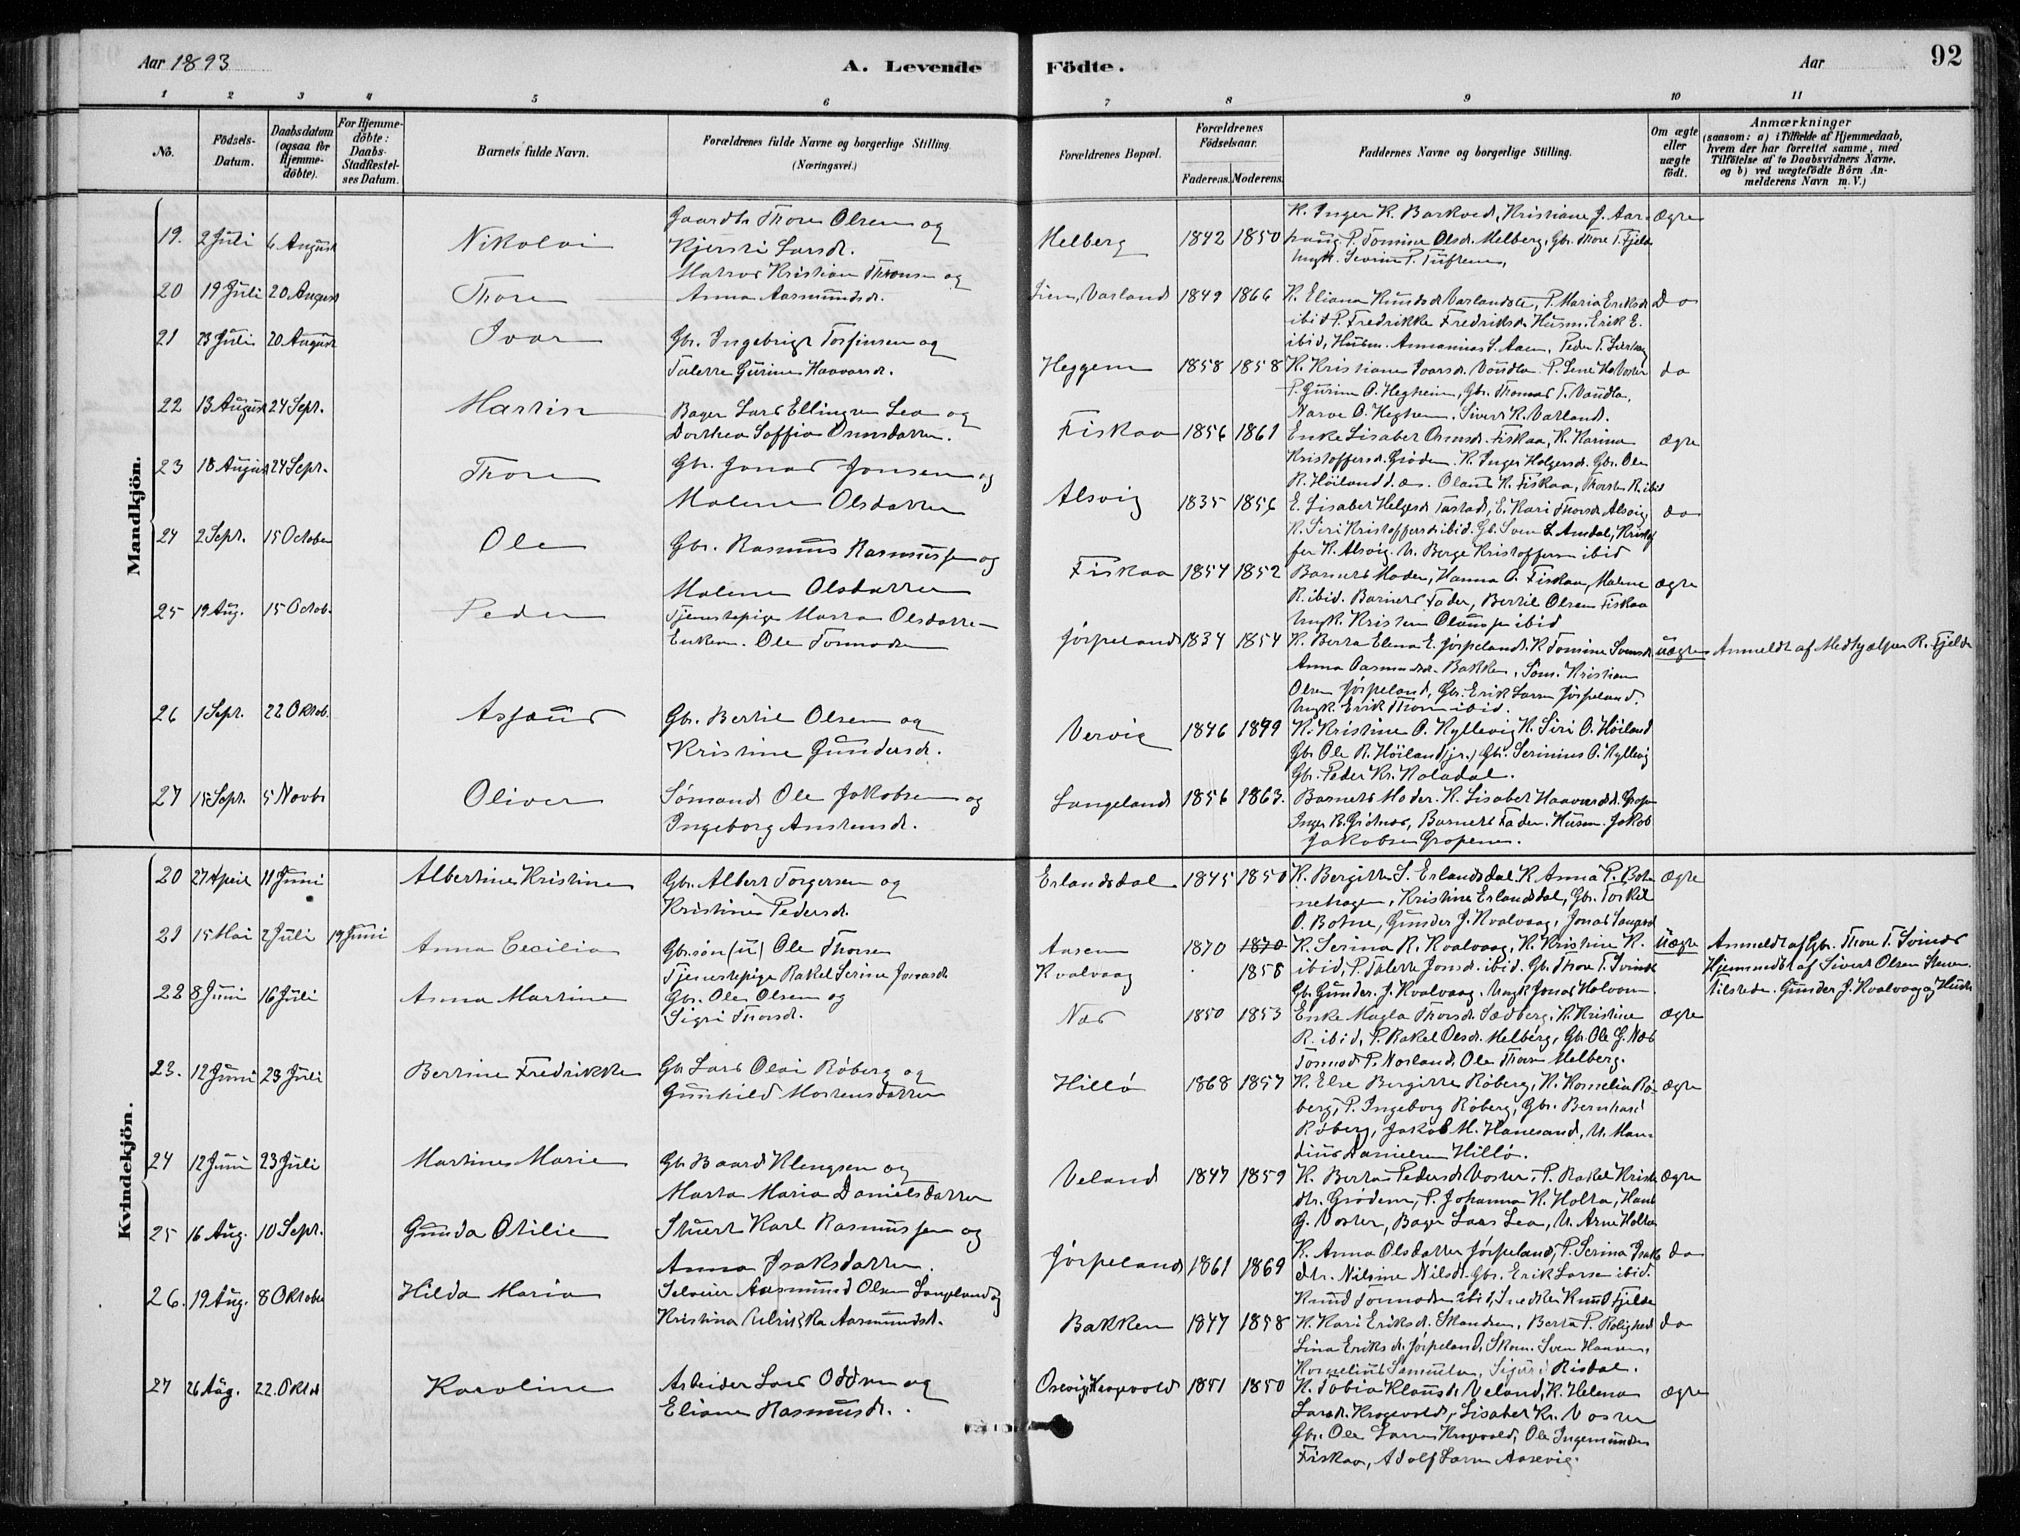 Aar 1893
A. Levende
Födte.
Aar
92
1 2 3 4 5 6 7 8 9 10 11
No.
Födsels-Datum.
Daabsdatum (ogsaa for Hjemme-döbte).
For Hjemme-döbte: Daabs-Stadfæstel-ses Datum.
Barnets fulde Navn.
Forældrenes fulde Navne og borgerlige Stilling.
(Næringsvei.)
Forældrenes Bopæl.
Forældrenes Födselsaar.
Faderens. Moderens.
Faddernes Navne og borgerlige Stilling.
Om ægte eller uægte födt.
Anmærkninger
(saasom: a) i Tilfælde af Hjemmedaab,
hvem der har forrettet samme, med
Tilföielse af to Daabsvidners Navne,
og b) ved uægtefödte Börn An-
melderens Navn m. V.)
Mandkjön.
19. 2 Juli 6 August Nikolai Gaardbr. Thore Olsen og
Kjersti Larsdr. Melberg 1842 1850 K. Inger K. Barkved, Kristiane J. Aar-
haug P. Tomine Olsdr. Melberg, Gbr. Thore T. Fjelde
Ungk. Severin P. Tuftene, ægte
20 19 Juli 20 August Thore Matros Kristian Thorsen og
Anna Aasmundsdr. Varland 1849 1866 K. Eliana Knudsdr Varlandste, P. Maria Eriksdr
ibid P. Fredrikke Fredriksdr. Husm. Erik E.
ibid, Husm. Ammanias S. Aaen, Peder T. do
21 23 Juli 20 August Ivar Gbr. Ingebrigt Torfinsen og
Talette Gurine Haavarsdr. Heggem 1858 1858 K. Kristiane Ivarsdr. Vaudla. P. Lene H. Voster
P. Gurine O. Heghem, Gbr. Thomas T. Vaudla,
Narve O. Heghem, Sivert K. Varland. do
22 13 August 24 Sept. Martin Bager Lars Ellingsen Lea og
Dorthea Soffia Osmsdatter. Fiskaa 1856 1861 Enke Lisabet Osmsdr. Fiskaa, K. Karina
Kristoffersdr. Grøden K. Inger Holgersdr. Gbr. Ole
R. Höiland d. æ. Olaus K. Fiskaa, Thorsten K. ibid ægte
23 18 August 24 Sept. Thore Gbr. Jonas Jonsen og
Malene Olsdatter Alsvig 1835 1856 E. Lisabet Helgesdr Tastad, E. Kari Thorsdr Alsvig,
K. Siri Kristoffersdr ibid. Gbr. Sven L Amdal, Kristof
fer K. Alsvig. U. Berge Kristoffersen ibid do
24 2 Sept. 15 October Ole Gbr. Rasmus Rasmussen og
Malene Olsdatter Fiskaa 1854 1852 Barnets Moder, Hanna O. Fiskaa, Malene
R. ibid. Barnets Fader, Bertil Olsen Fiskaa
Ungk. Kristen Olaussen ibid ægte
25 19 Aug. 15 Octob. Peder Tjenestepige Marta Olsdatter
Enkem. Ole Tormodsen Jørpeland 1834 1854 K. Berta Elena E. Jørpeland. K. Tomine Svensdr
Anna Aasmundsdr. Bakken, Søm. Kristian
Olsen Jørpeland, Gbr. Erik Larsen Jørpeland.
Ungk. Erik Thorsen ibid. Uægte Anmeldt af Medhjælper R. Fjelde
26 1 Sept. 22 Oktob. Asjaur Gbr. Bertil Olsen og
Kristine Gundersdr. Vervig 1846 1849 K. Kristine O. Kyllevig K. Siri O. Höiland
Gbr. Ole R. Höiland (jr.) Gbr. Serinius O. Kyllevig
Gbr. Peder Kr. Koladal.
27 15 Sept. 5 Novbr Oliver Sømand Ole Jakobsen og
Ingeborg Austensdr. Langeland 1856 1863. Barnets Moder. K. Lisabet Haavardsdr. Gropen
Inger B. Gitnes, Barnets Fader. Husm. Jakob
Jakobsen Gropene.
Kvindekjön.
20 27 April 11 Juni Albertine Kristine Gbr. Albert Torgersen og
Kristine Pedersdr. Erlandsdal 1845 1850 K. Bergitte S. Erlandsdal K. Anna P. Bot-
nehagen, Kristine Erlandsdal, Gbr. Torkil
O. Botne, Gunder J. Kvalvaag, Jonas ægte
21 15 Mai 2 Juli 19 Juni Anna Cecilia Gbr.søn (u) Ole Thorsen
Tjenestepige Rakel Serine Jonasdr. Aasen
Kvalvaag 1870 1870
1858 K. Serina R. Kvalvaag, K. Kristine K.
ibid, P. Talette Jonsdr. ibid. Gbr. Thore T. Svines
Gbr Gunder. J. Kvalvaag. Ungk Jonas Halvorsen Uægte Anmeldt af Gbr. Thore T. Svines
Hjemmedøbt af Sivert Olsen
tilstede. Gunder J. Kvalvaag og
22 8 Juni 16 Juli Anna Martine Gbr. Ole Olsen og
Sigri Thorsdr. Næs 1850 1853 Enke Magla Thorsdr. Sedberg, K. Kristine
R. ibid, P. Rakel Olsdr. Melberg, Gbr Ole G. Næs
Tormod P. Norland, Ole Thorsen Melberg. ægte
23. 12 Juni 23 Juli Bertine Fredrikke Gbr Lars Olai Röberg og
Gunhild Mortensdatter Hillö 1868 1857 K. Else Bergitte Röberg, K. Kornelia Rö-
berg, P. Ingeborg Röberg, Gbr. Bernhard
Röberg, Jakob M. Hanesand, U. Mau-
ritius Danielsen Hillö. ægte
24 12 Juni 23 Juli Martine Marie Gbr Baard Klengsen og
Marta Maria Danielsdatter Veland 1847 1859 K. Berta Pedersdr. Voster, P. Rakel Kristi-
dtr. Grødem, P. Johanna K. Holta, Hans
G. Voster, Bager Lars Lea, U. Arne Holta ægte
25 16 Aug. 10 Sept. Gunda Otilie Stuert Karl Rasmussen og
Anna Isaksdatter. Jørpeland 1861 1869 K. Anna Olsdatter Jørpeland, P. Serina Isaks
dtr. Nilsine Nilsdr. Gbr. Erik Larsen ibid.
Knud Tormodsen ibid, Snedker Knud Fjelde do
26. 19 Aug. 8 Oktober Hilda Maria Selveier Aasmund Olsen Langeland og
Kristina Ulrikka Aasmundsdr. Bakken 1847 1858 K. Kari Eriksdr. Skanden, Berta P. Rolighed
Lina Eriksdr. Jørpeland, Skom. Sven Hansen,
Kornelius Samuelsen, Sigurd Risdal. do
27 26 Aug. 22. Oktob Karoline Arbeider Lars Oddsen og
Eliane Rasmusdr. Osevig, Krogevold 1851 1850 K. Tobia Klausdr. Veland, K. Helena
Larsdr. Krogevold, Lisabet Kr. Voster
Gbr. Ole Larsen Krogevold, Ole Ingemundsen
Fiskaa, Adolf Larsen Aasevig. ægte